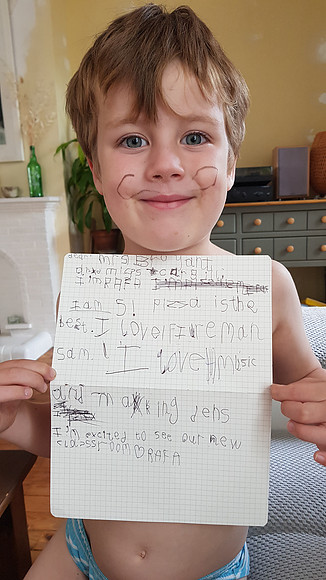 dear mrs Bryant
I'm RAFA
I am 5! pizza is the
best. I love FIreman
Sam. I love music
and making dens
I'm excited to see our new
classroom♡RAFA